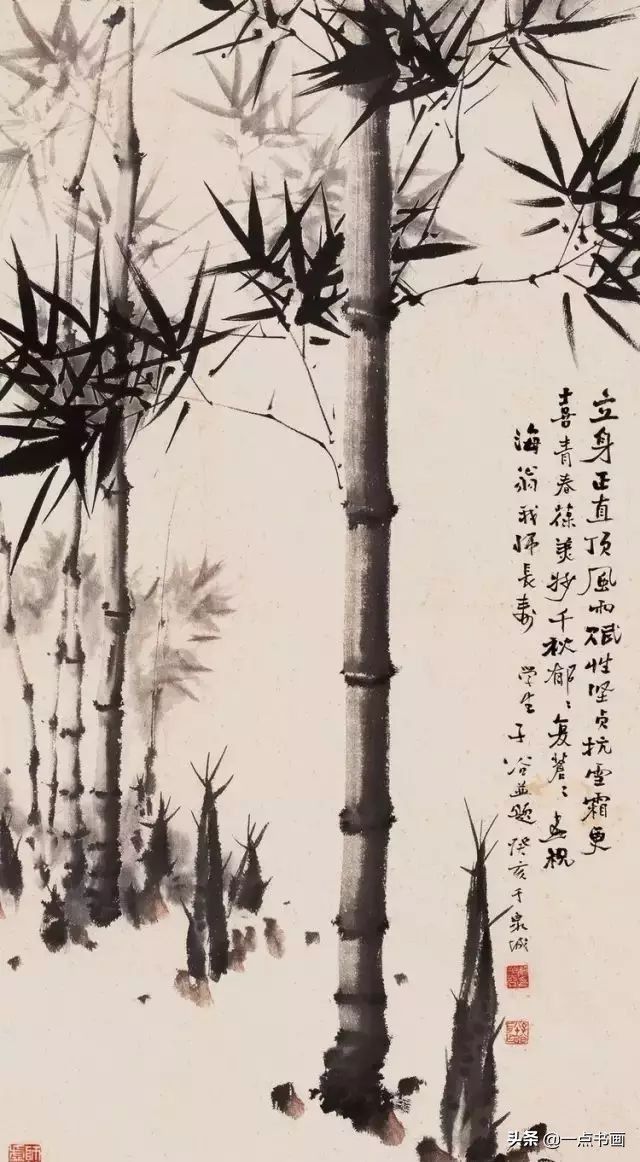 立身正直顶风雨赋性坚贞抗雪霜更
喜青春葆美好千秋郁〻复苍〻祝
海翁我师长寿
学生子谷並题癸亥于泉城
头条 @一点书画